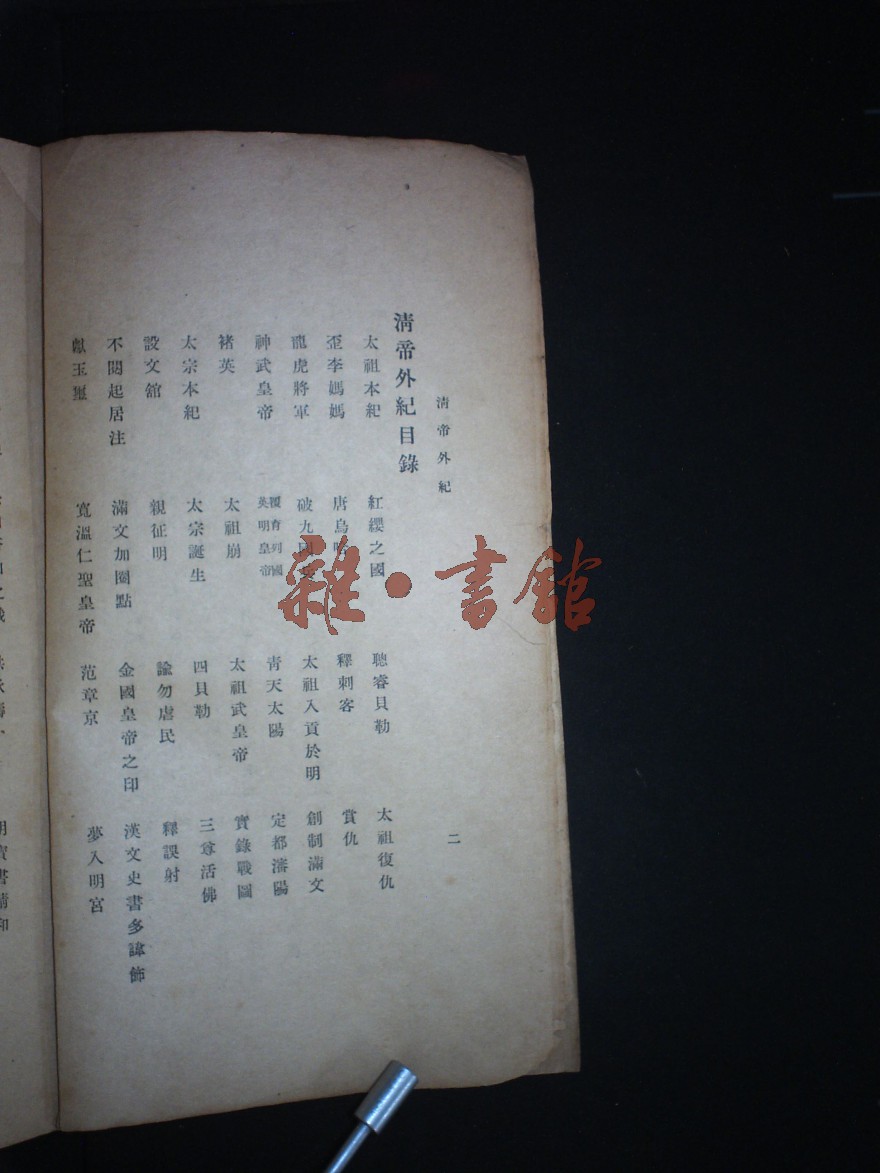 清帝外紀
二
清帝外紀目錄
太祖本紀 紅纓之國 聰睿貝勒 太祖復仇
歪李媽媽 唐烏哈 釋刺客 賞仇
龍虎將軍 破九國 太祖入貢於明 創制滿文
神武皇帝 覆育列國英明皇帝 青天太陽 定都瀋陽
褚英 太祖崩 太祖武皇帝 實錄戰圖
太宗本紀 太宗誕生 四貝勒 三尊活佛
設文館 親征明 諭勿虐民 釋誤射
不閱起居注 滿文加圈點 金國皇帝之印 漢文史書多諱飾
獻玉璽 寬溫仁聖皇帝 范章京 夢入明宮
雜·書館